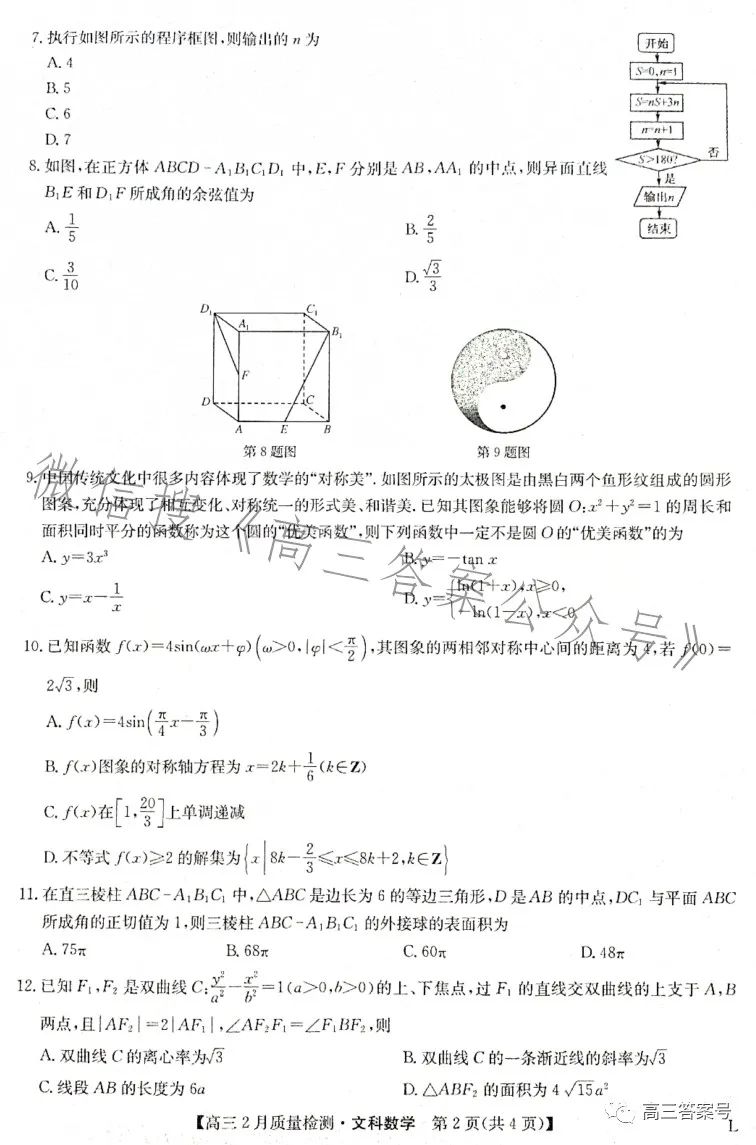 7. 执行如图所示的程序框图,则输出的 n 为
A. 4
B. 5
C. 6
D. 7
开始
S=0,n=1
S=nS+3n
n=n+1
S>180?
否
是
输出n
结束
8. 如图,在正方体 ABCD-A₁B₁C₁D₁ 中,E,F 分别是 AB,AA₁ 的中点,则异面直线
B₁E 和 D₁F 所成角的余弦值为
A. 1/5 B. 2/5
C. 3/10 D. √3/3
D₁ C₁
A₁ B₁
F
D C
A E B
第 8 题图 第 9 题图
9. 中国传统文化中很多内容体现了数学的“对称美”. 如图所示的太极图是由黑白两个鱼形纹组成的圆形
图案,充分体现了相互变化、对称统一的形式美、和谐美. 已知其图象能够将圆 O:x²+y²=1 的周长和
面积同时平分的函数称为这个圆的“优美函数”,则下列函数中一定不是圆 O 的“优美函数”的为
A. y=3x³ B. y=-tan x
C. y=x-1/x D. y={ln(1+x),x≥0, -ln(1-x),x<0
10. 已知函数 f(x)=4sin(ωx+φ)(ω>0,|φ|<π/2),其图象的两相邻对称中心间的距离为 4,若 f(0)=
2√3,则
A. f(x)=4sin(π/4 x-π/3)
B. f(x)图象的对称轴方程为 x=2k+1/6(k∈Z)
C. f(x)在[1,20/3]上单调递减
D. 不等式 f(x)≥2 的解集为{x|8k-2/3≤x≤8k+2,k∈Z}
11. 在直三棱柱 ABC-A₁B₁C₁ 中,△ABC 是边长为 6 的等边三角形,D 是 AB 的中点,DC₁ 与平面 ABC
所成角的正切值为 1,则三棱柱 ABC-A₁B₁C₁ 的外接球的表面积为
A. 75π B. 68π C. 60π D. 48π
12. 已知 F₁,F₂ 是双曲线 C:y²/a²-x²/b²=1(a>0,b>0)的上、下焦点,过 F₁ 的直线交双曲线的上支于 A,B
两点,且|AF₂|=2|AF₁|,∠AF₂F₁=∠F₁BF₂,则
A. 双曲线 C 的离心率为√3 B. 双曲线 C 的一条渐近线的斜率为√3
C. 线段 AB 的长度为 6a D. △ABF₂ 的面积为 4√15a²
【高三 2 月质量检测·文科数学 第 2 页(共 4 页)】 L
微信搜《高三答案公众号》
高三答案号